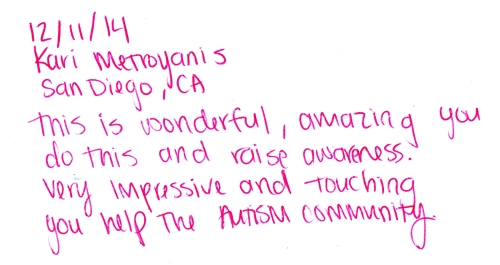 12/11/14
Kari Metroyanis
San Diego, CA
This is wonderful, amazing you
do this and raise awareness.
Very impressive and touching
you help the Autism community.